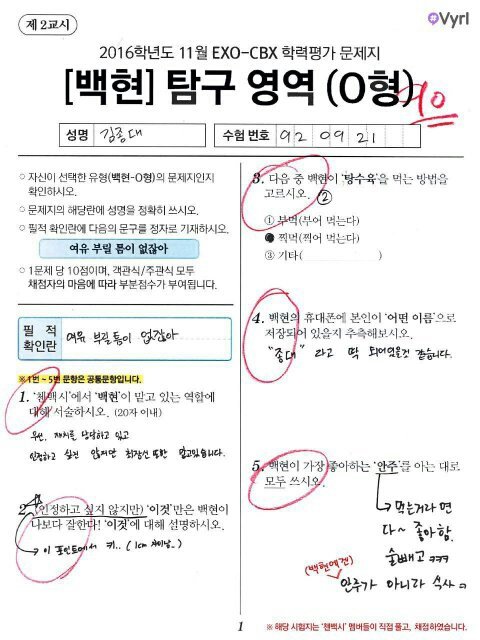 제 2교시
#Vyrl
2016학년도 11월 EXO-CBX 학력평가 문제지
[백현] 탐구 영역 (O형)
90
성명 김종대
수험 번호 92 09 21
○ 자신이 선택한 유형(백현-O형)의 문제지인지
확인하시오.
○ 문제지의 해당란에 성명을 정확히 쓰시오.
○ 필적 확인란에 다음의 문구를 정자로 기재하시오.
여유 부릴 틈이 없잖아
○ 1문제 당 10점이며, 객관식/주관식 모두
채점자의 마음에 따라 부분점수가 부여됩니다.
필 적
확인란
여유 부릴틈이 없잖아
※1번 ~ 5번 문항은 공통문항입니다.
1. '첸백시'에서 '백현'이 맡고 있는 역할에
대해 서술하시오. (20자 이내)
우선, 재치를 담당하고 있고
인정하고 싶진 않지만 회장선 또한 맡고있습니다.
2. '(인정하고 싶지 않지만) '이것'만은 백현이
나보다 잘한다! '이것'에 대해 설명하시오.
이 포인트에서 키.. (1cm 차이남)
3. 다음 중 백현이 '탕수육'을 먹는 방법을
고르시오. ②
① 부먹(부어 먹는다)
② 찍먹(찍어 먹는다)
③ 기타( )
4. 백현의 휴대폰에 본인이 '어떤 이름'으로
저장되어 있을지 추측해보시오.
"종대" 라고 딱 되어있을것 같습니다.
5. 백현이 가장 좋아하는 '안주'를 아는 대로
모두 쓰시오.
먹는거라면
다~ 좋아함.
술빼고 ㅋㅋㅋ
(백현에겐)
안주가 아니라 식사 ㅁ
1
※ 해당 시험지는 '첸백시' 멤버들이 직접 풀고, 채점하였습니다.